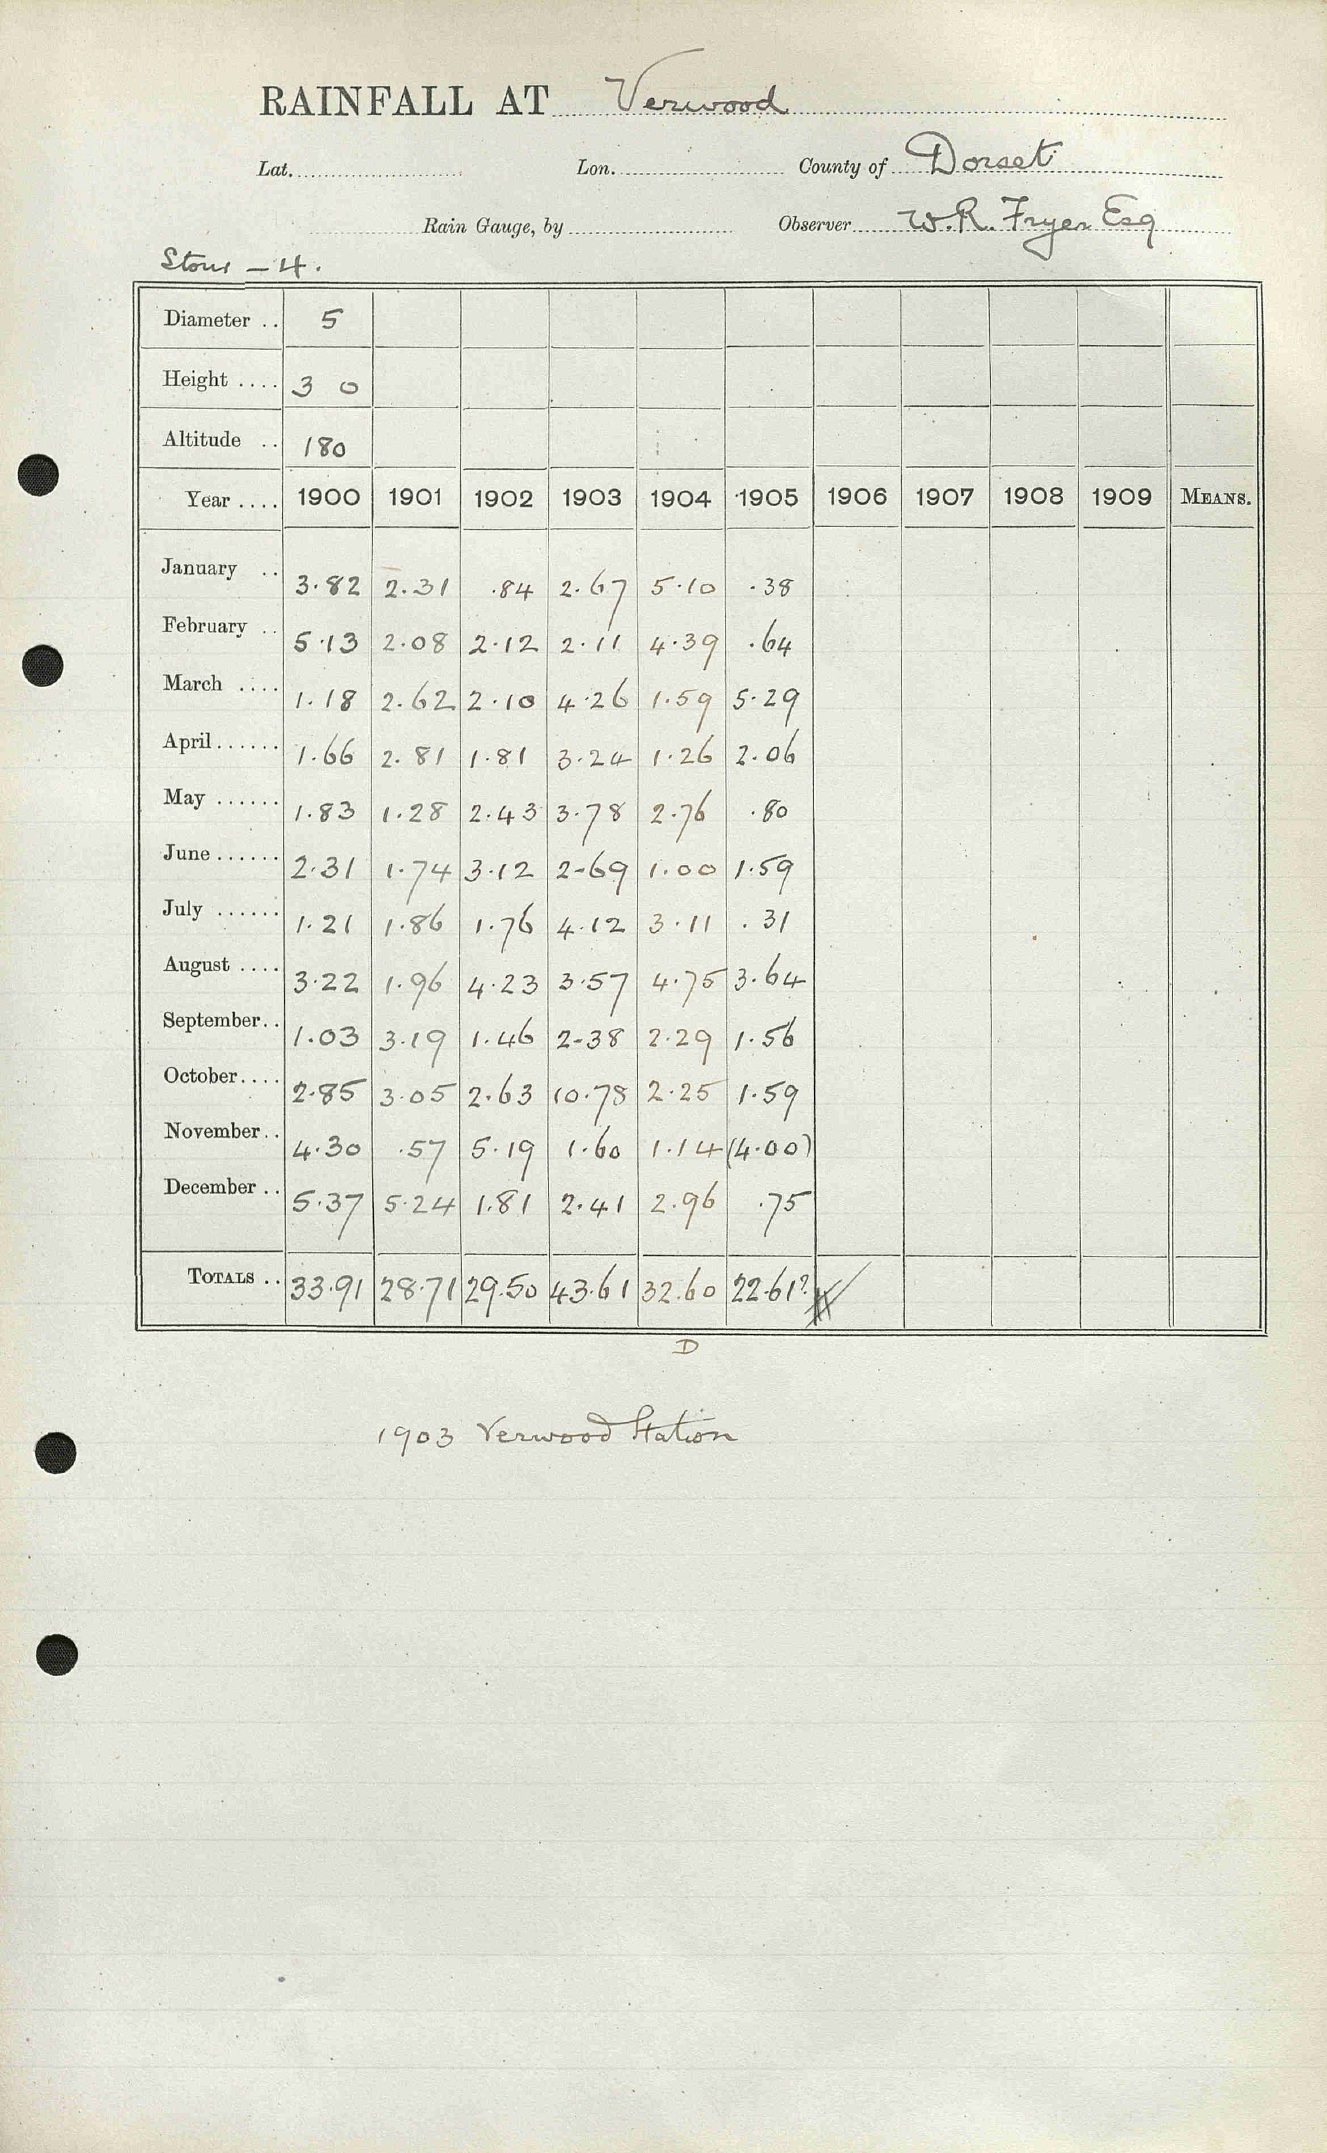 RAINFALL AT Verwood
Lat. Lon. County of Dorset
Rain Gauge, by Observer W. R. Fryer Esq
Stour - 4.
Diameter .. 5
Height .... 3 0
Altitude .. 180
Year .... 1900 1901 1902 1903 1904 1905 1906 1907 1908 1909 MEANS.
January .. 3.82 2.31 .84 2.67 5.10 .38
February .. 5.13 2.08 2.12 2.11 4.39 .64
March .... 1.18 2.62 2.10 4.26 1.59 5.29
April ...... 1.66 2.81 1.81 3.24 1.26 2.06
May ...... 1.83 1.28 2.43 3.78 2.76 .80
June ...... 2.31 1.74 3.12 2.69 1.00 1.59
July ...... 1.21 1.86 1.76 4.12 3.11 .31
August .... 3.22 1.96 4.23 3.57 4.75 3.64
September .. 1.03 3.19 1.46 2.38 2.29 1.56
October .... 2.85 3.05 2.63 10.78 2.25 1.59
November .. 4.30 .57 5.19 1.60 1.14 (4.00)
December .. 5.37 5.24 1.81 2.41 2.96 .75
TOTALS .. 33.91 28.71 29.50 43.61 32.60 22.61?
D
1903 Verwood Station